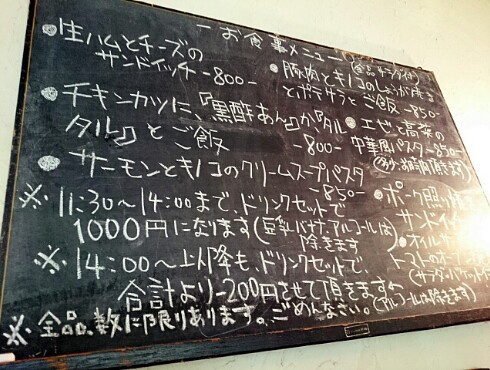 ーお食事メニュー(全品サラダ付)
●生ハムとチーズの
サンドイッチ -800-
●チキンカツに、『黒酢あん』か、『タル
タル』とご飯 -800-
●サーモンとキノコのクリームスープパスタ
-850-
●豚肉とキノコのしょうが焼き
とポテサラとご飯 -850-
●エビと高菜の
中華風パスタ -850-
頂きます)
●ポーク
サンドイ
●オイル
トマトの
(サラダ・バケット
※ 11:30〜14:00まで、ドリンクセットで
1000円になります(豆乳バナナ、アルコールは
除きます
※ 14:00〜以降も、ドリンクセットで、
合計より-200円させて頂きます
(アルコールは除きます)
※ 全品、数に限りあります。ごめんなさい。